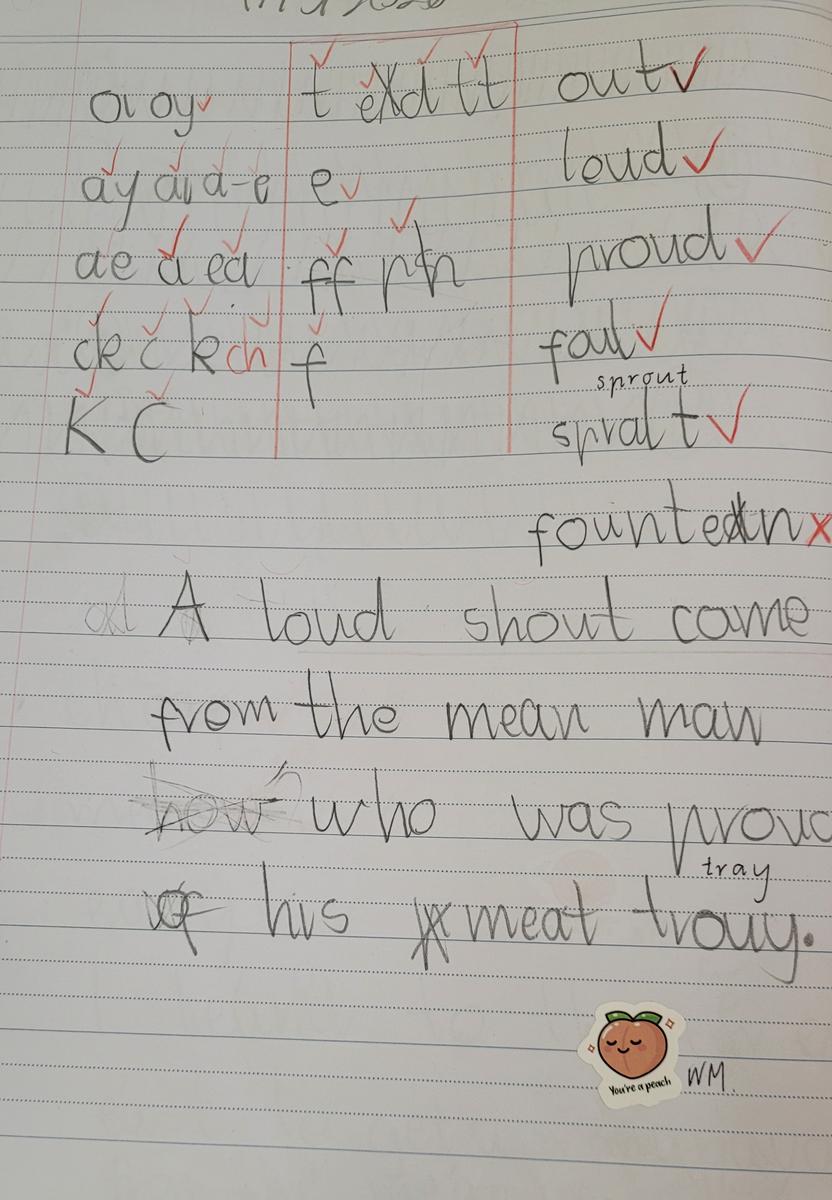 oi oy t ed tt out
ay ai a-e e loud
ae a ea ff ph proud
ck c k ch f foul
sprout
K C sprait
fountean
A loud shout came
from the mean man
how who was proud
tray
of his meat trouy.
You're a peach
WM.